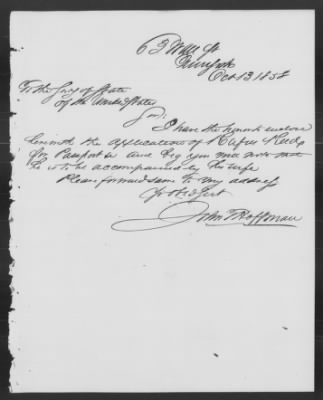 63 Wall St
New York
Oct 13 1858
To the Secy of State
of the United States
Sir:
I have the honor to enclose
herewith the application of Rufus Reed
for Passport &c and beg you
he is to be accompanied by his wife
Please forward same to my address
Yr Obd Servt
John T Hoffman